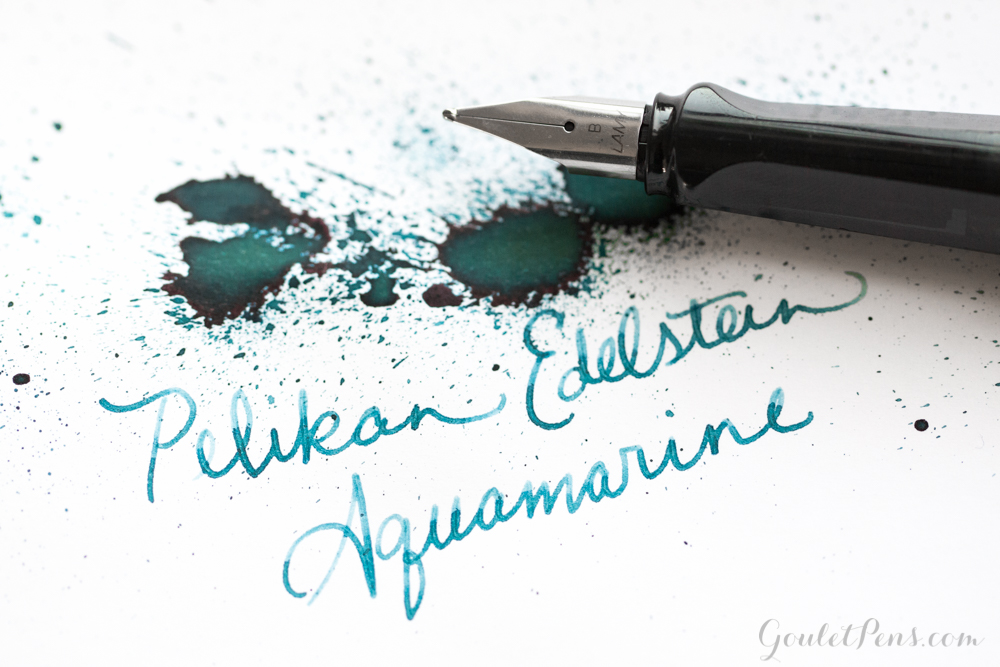 B
LAMY
Pelikan Edelstein
Aquamarine
GouletPens.com